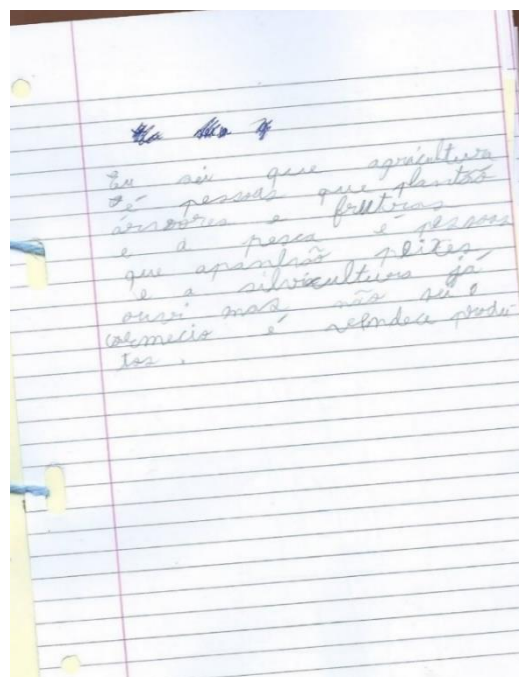 Eu sei que agricultura
é pessoas que plantão
árvores e frutras
e a pesca é pessoas
que apanhão peixes,
e a silvicultura já
ouvi mas não sei o
comecio é vender produ-
tos.